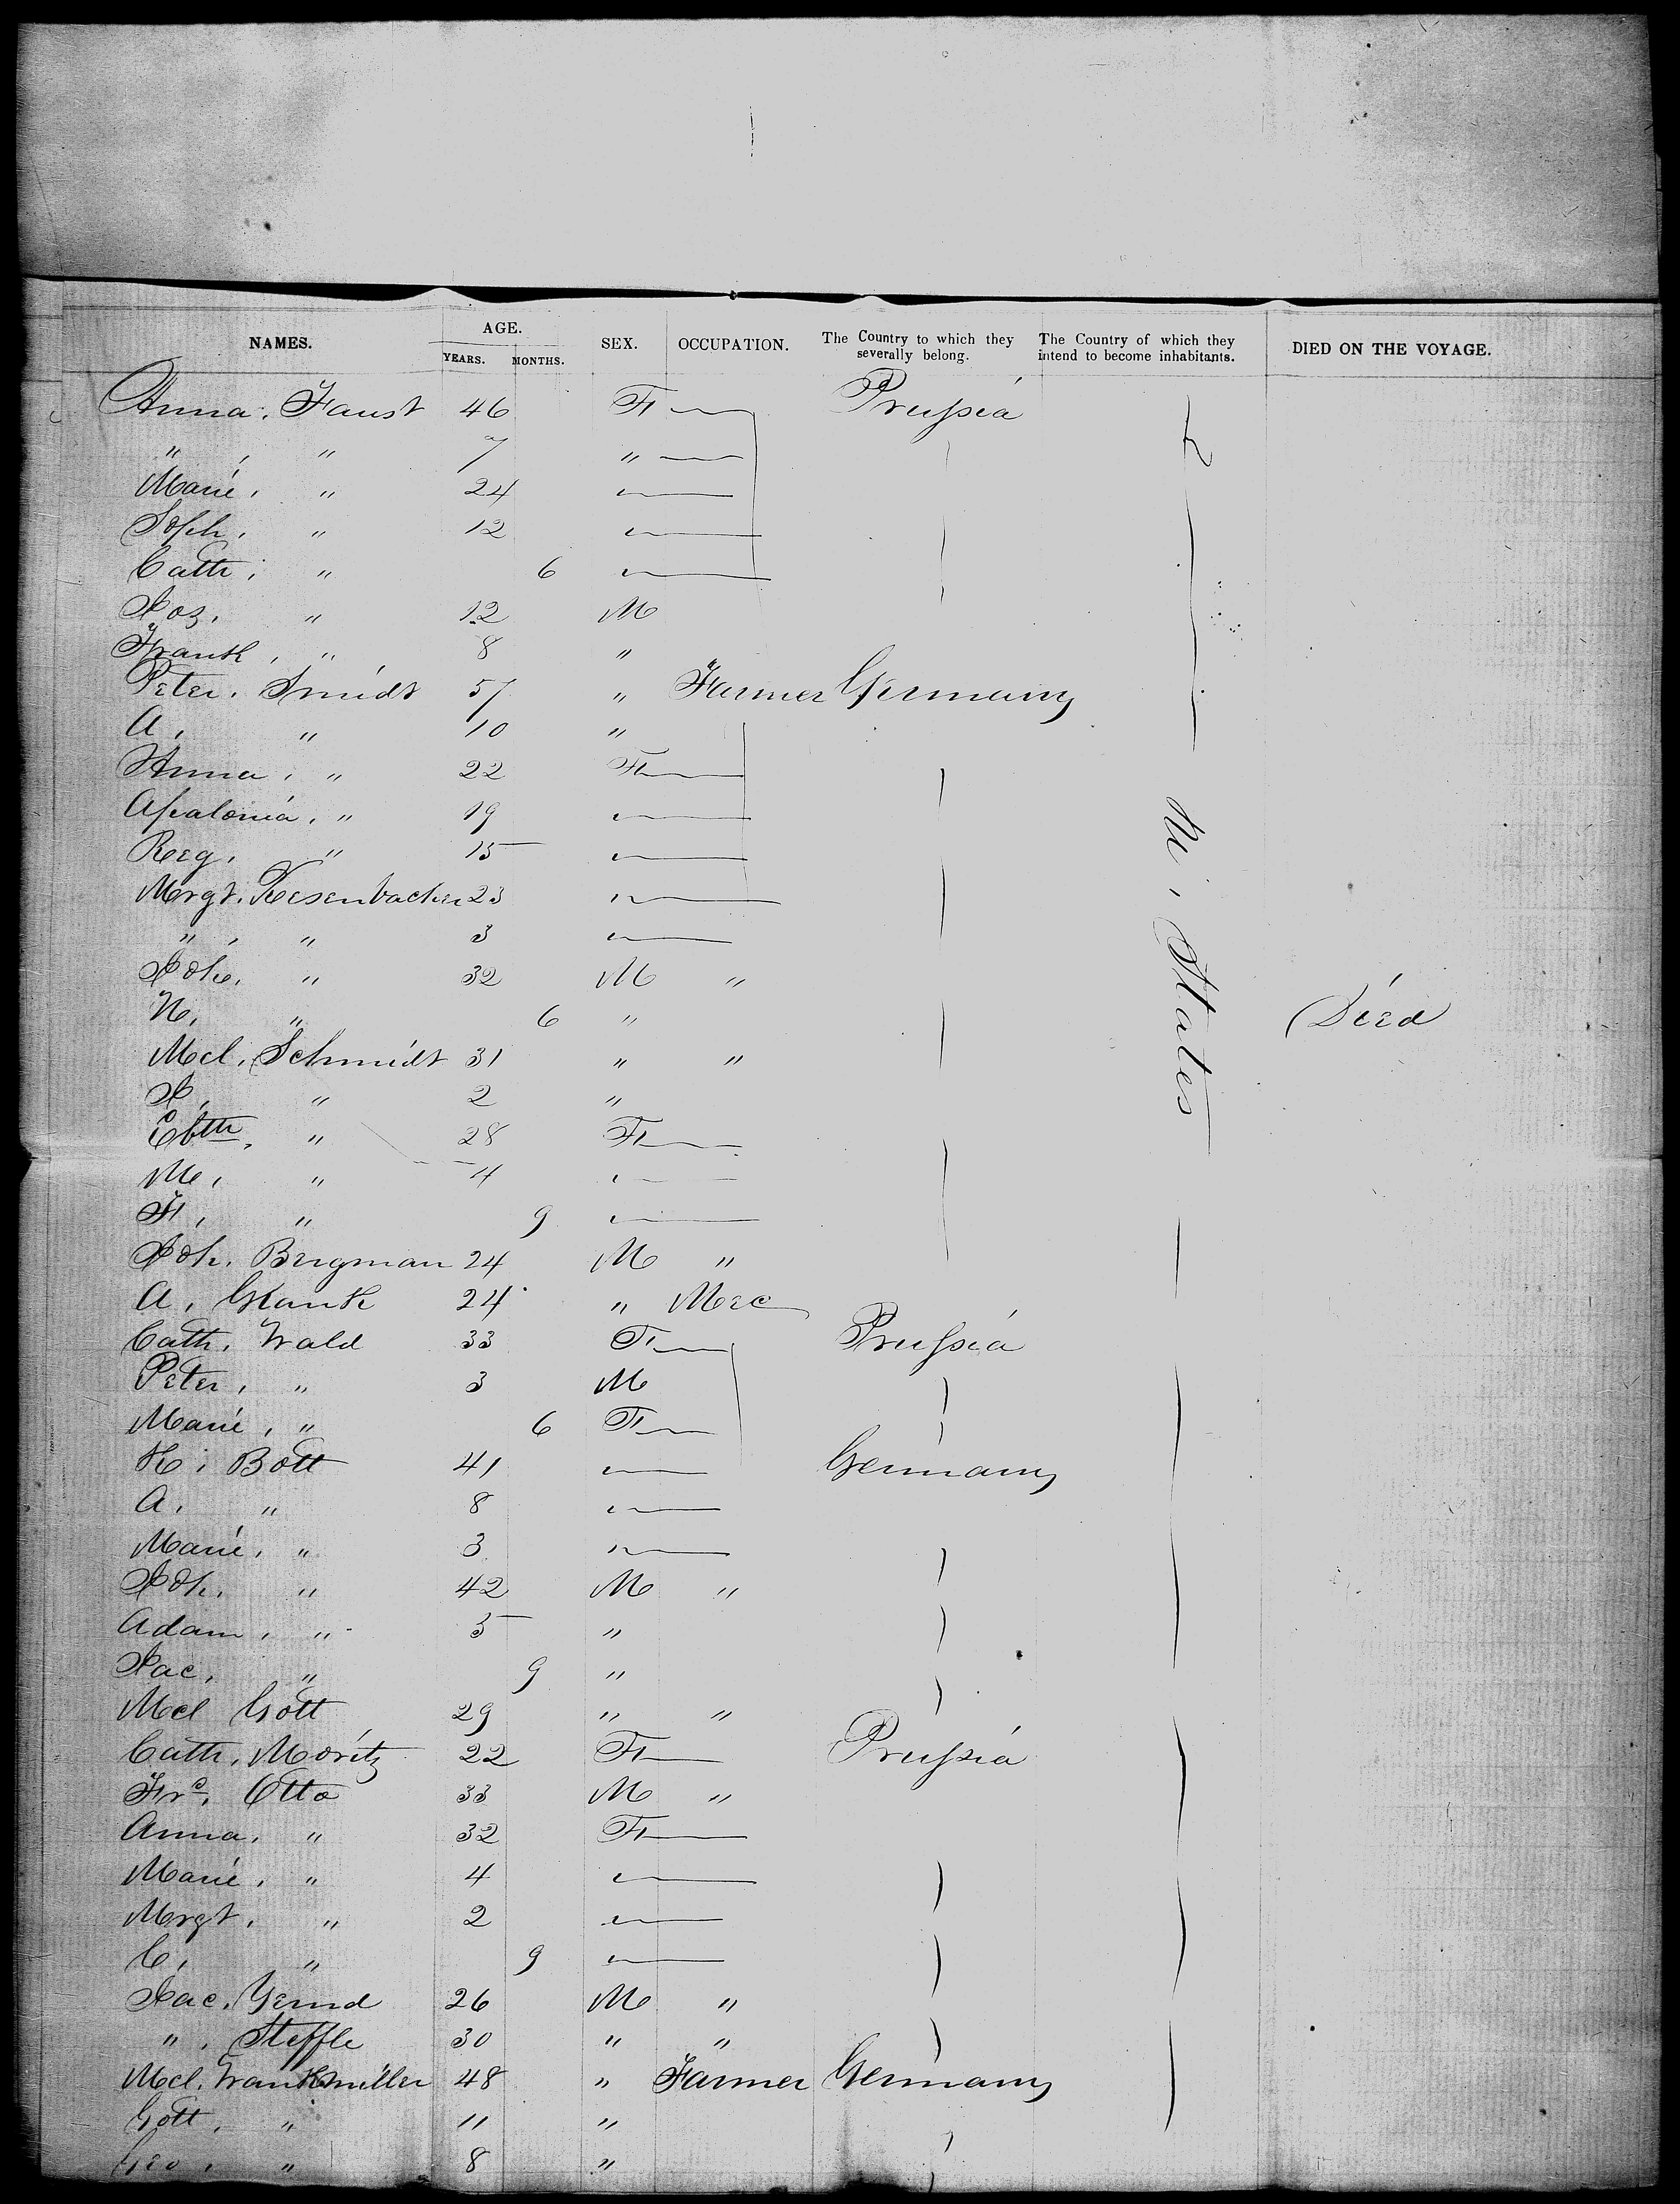 NAMES. AGE. YEARS. MONTHS. SEX. OCCUPATION. The Country to which they severally belong. The Country of which they intend to become inhabitants. DIED ON THE VOYAGE.
Anna. Faust 46 F Prussia
" , " 7 "
Marie, " 24
Soph. " 12
Cath, " 6
Jos. " 12 M
Frank, " 8 "
Peter. Smidt 57 " Farmer Germany
A, " 10 "
Anna, " 22 F
Apalonia, " 19
Reg, " 15
Mrgt. 23
" , " 3
Joh. " 32 M "
N, " 6 " Died
Mcl. Schmidt 31 " "
J, " 2 "
Cbth, " 28 F
M, " 4
F, " 9
Joh. Bergman 24 M "
A, 24 " Mec
Cath. Wald 33 F Prussia
Peter, " 3 M
Marie, " 6 F
K. Bott 41 Germany
A. " 8
Marie, " 3
Joh. " 42 M "
Adam, " 5 "
Jac, " 9 "
Mcl Gott 29 " "
Cath, Moritz 22 F Prussia
Frc, Otto 33 M "
Anna, " 32 F
Marie, " 4
Mrgt, " 2
C, " 9
Jac. 26 M "
" , Steffle 30 " "
Mcl. Frankmiller 48 " Farmer Germany
Gott, " 11 "
Geo, " 8 "
States